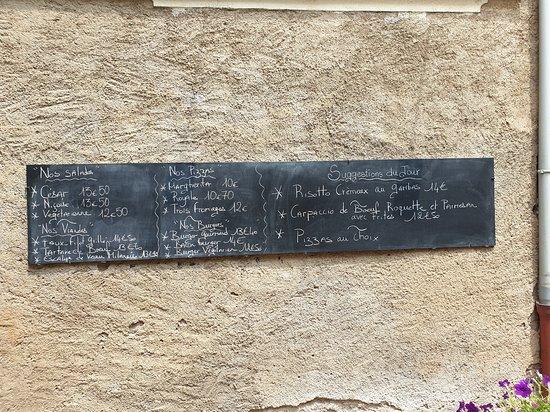 Nos Salades
* César 13€50
* Niçoise 13€50
* Végétarienne 12€50
Nos Viandes
* Faux filet grillé 14€50
* Tartare de Boeuf
* Escalope de Veau Milanaise 13€50
Nos Pizzas
* Margherita 10€
* Royale 10€70
* Trois Fromages 12€
Nos Burgers
* Burger gourmand 13€40
* burger 14€
* Burger Végétarien 11€50
Suggestions du Jour
* Risotto Crémeux au gambas 14€
* Carpaccio de Bœuf Roquette et Parmesan
avec frites 12€50
* Pizzas au Choix